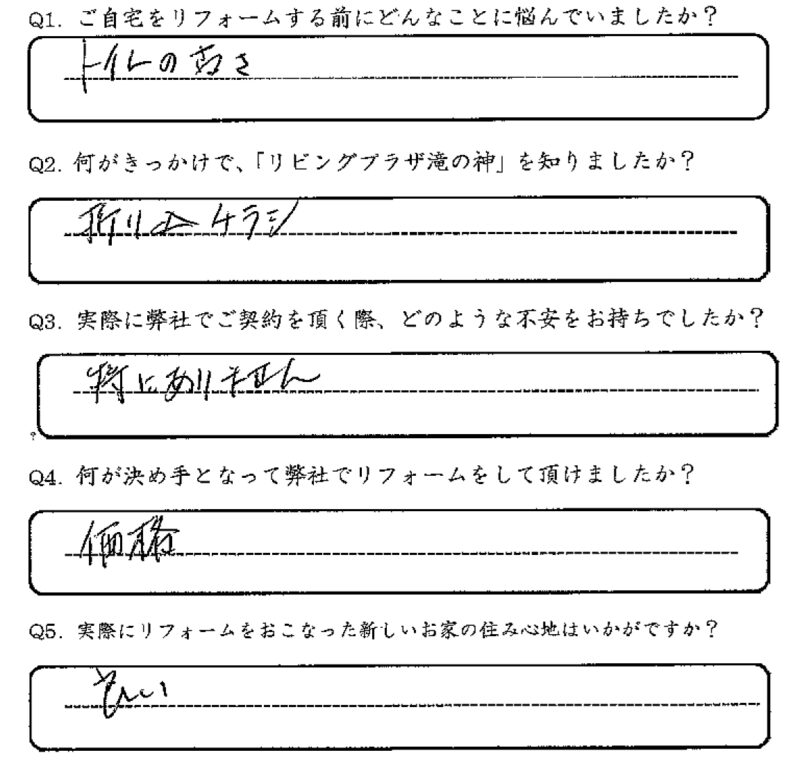 Q1. ご自宅をリフォームする前にどんなことに悩んでいましたか？
トイレの古さ
Q2. 何がきっかけで、「リビングプラザ滝の神」を知りましたか？
折り込チラシ
Q3. 実際に弊社でご契約を頂く際、どのような不安をお持ちでしたか？
特にありません
?
Q4. 何が決め手となって弊社でリフォームをして頂けましたか？
価格
Q5. 実際にリフォームをおこなった新しいお家の住み心地はいかがですか？